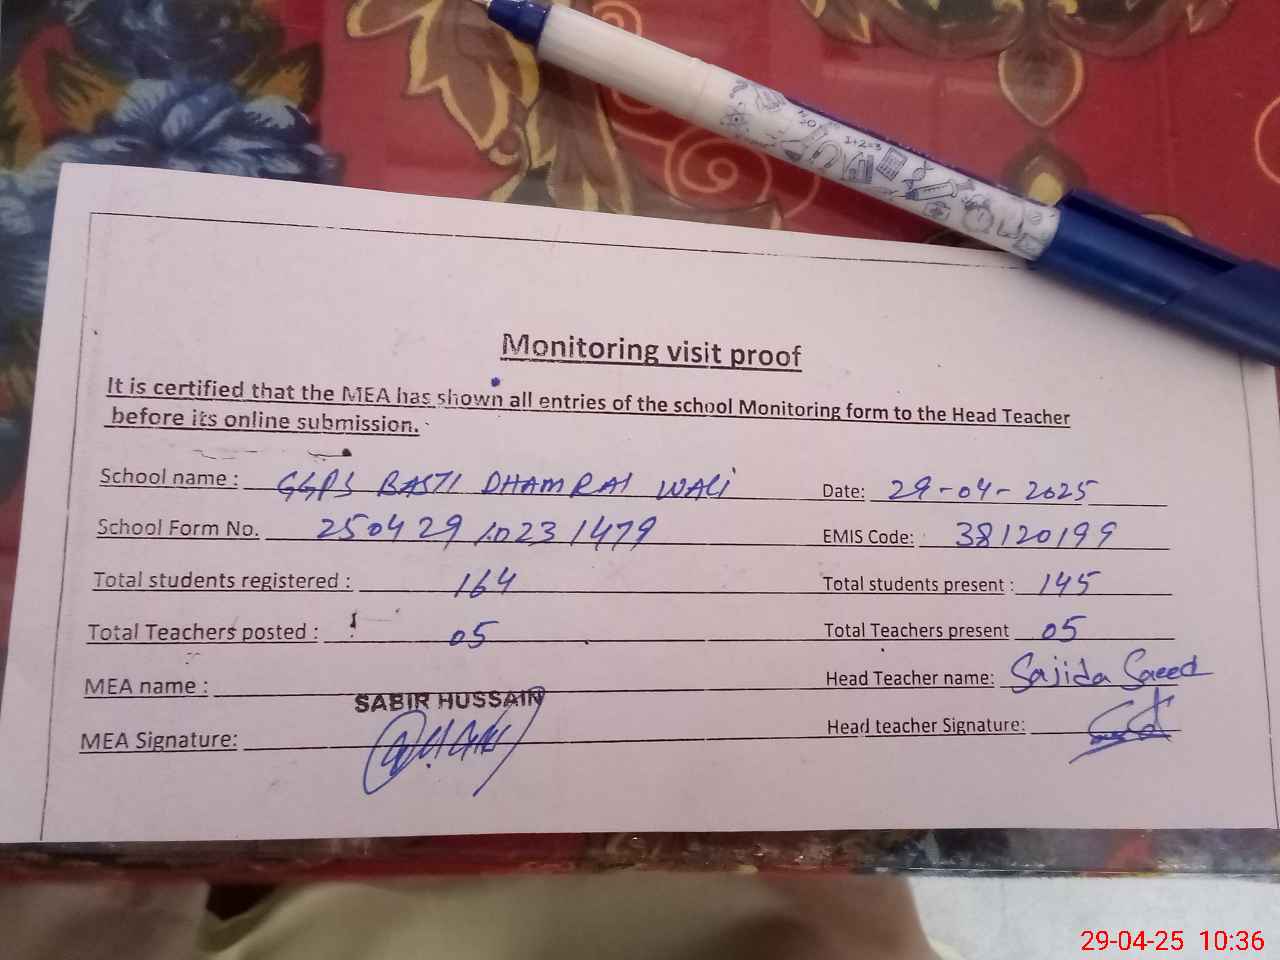 H2O
1+2=3
Monitoring visit proof
It is certified that the MEA has shown all entries of the school Monitoring form to the Head Teacher
before its online submission.
School name : GGPS BASTI DHAMRAI WALI Date: 29-04-2025
School Form No. 25042910231479 EMIS Code: 38120199
Total students registered : 164 Total students present : 145
Total Teachers posted : 05 Total Teachers present 05
MEA name : SABIR HUSSAIN Head Teacher name: Sajida Saeed
MEA Signature: Head teacher Signature:
29-04-25 10:36